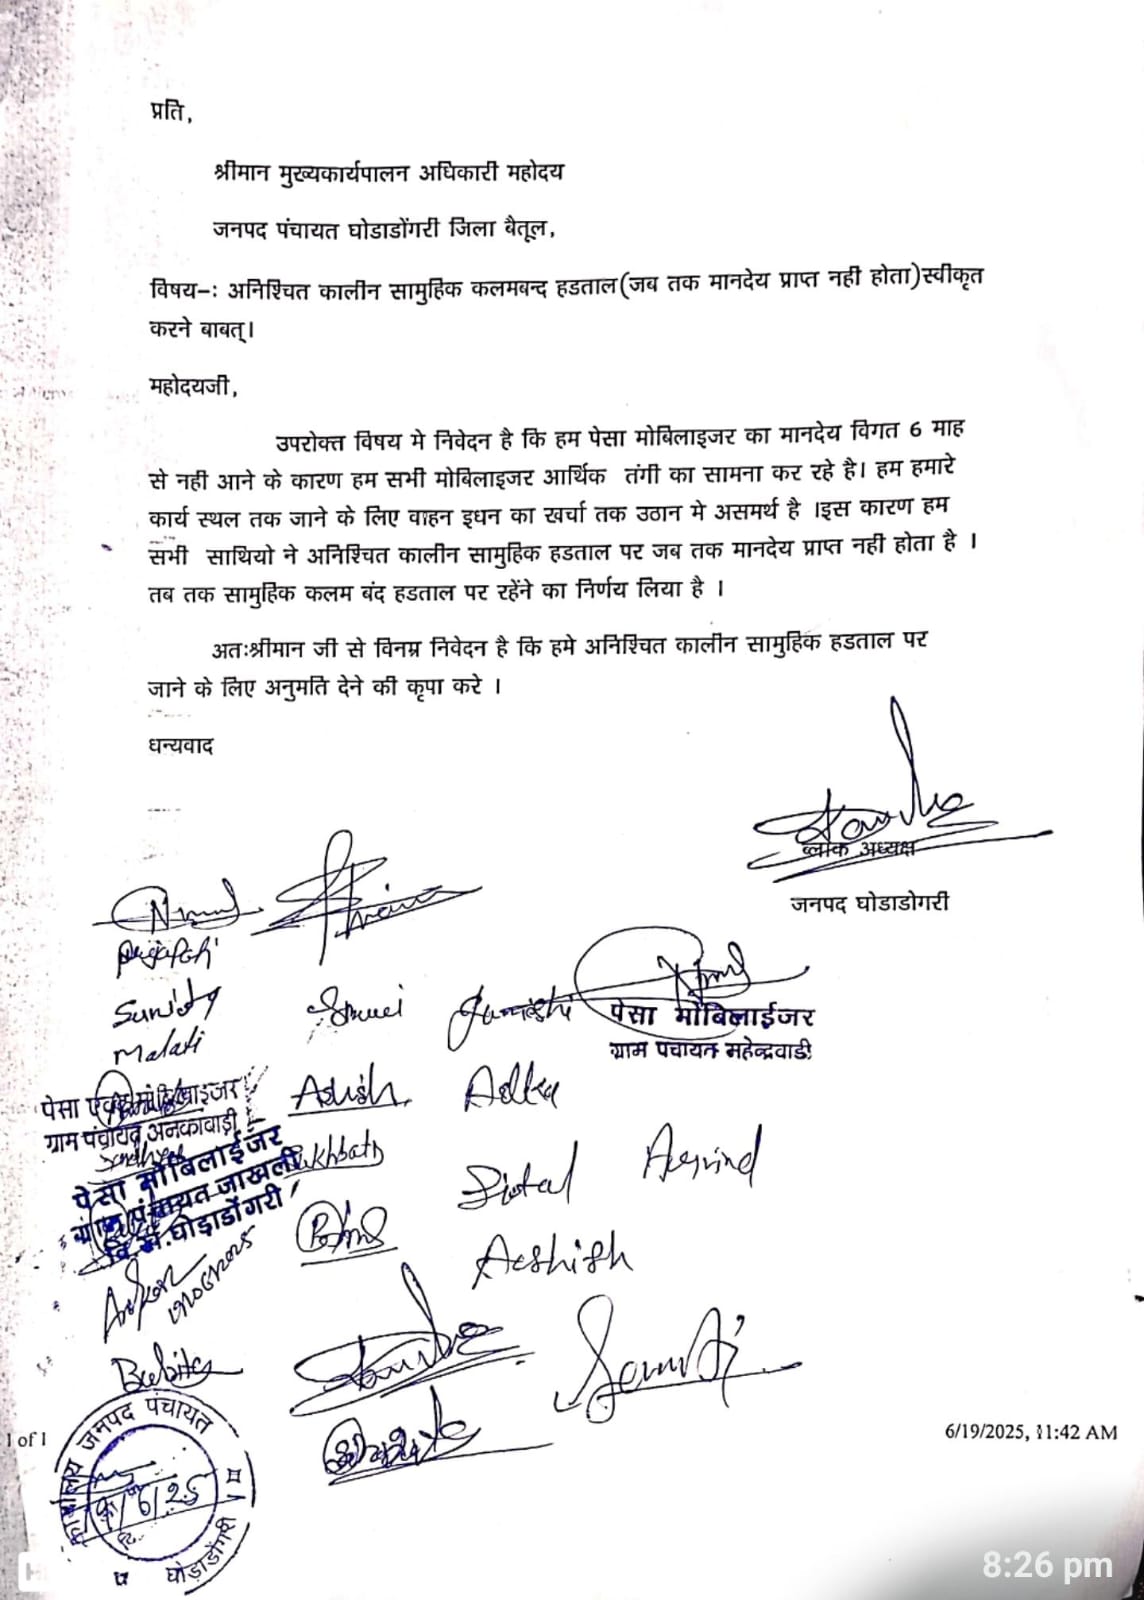 प्रति,
श्रीमान मुख्यकार्यपालन अधिकारी महोदय
जनपद पंचायत घोडाडोंगरी जिला बैतूल,
विषय-: अनिश्चित कालीन सामुहिक कलमबन्द हडताल(जब तक मानदेय प्राप्त नही होता)स्वीकृत
करने बाबत्।
महोदयजी,
उपरोक्त विषय मे निवेदन है कि हम पेसा मोबिलाइजर का मानदेय विगत 6 माह
से नही आने के कारण हम सभी मोबिलाइजर आर्थिक तंगी का सामना कर रहे है। हम हमारे
कार्य स्थल तक जाने के लिए वाहन इधन का खर्चा तक उठान मे असमर्थ है ।इस कारण हम
सभी साथियो ने अनिश्चित कालीन सामुहिक हडताल पर जब तक मानदेय प्राप्त नही होता है ।
तब तक सामुहिक कलम बंद हडताल पर रहेंने का निर्णय लिया है ।
अतःश्रीमान जी से विनम्र निवेदन है कि हमे अनिश्चित कालीन सामुहिक हडताल पर
जाने के लिए अनुमति देने की कृपा करे ।
धन्यवाद
ब्लाक अध्यक्ष
जनपद घोडाडोगरी
Sunita
Malati
पेसा मोबिलाईजर
ग्राम पंचायत महेन्द्रवाडी
Ashish
पेसा एक्ट मोबिलाइजर
ग्राम पंचायत अनकावाड़ी
Arvind
पेसा मोबिलाईजर
ग्राम पंचायत जाखली
वि.ख.घोड़ाडोंगरी
Aashish
1 of 1
6/19/2025, 11:42 AM
कार्यालय जनपद पंचायत
घोड़ाडोंगरी
8:26 pm